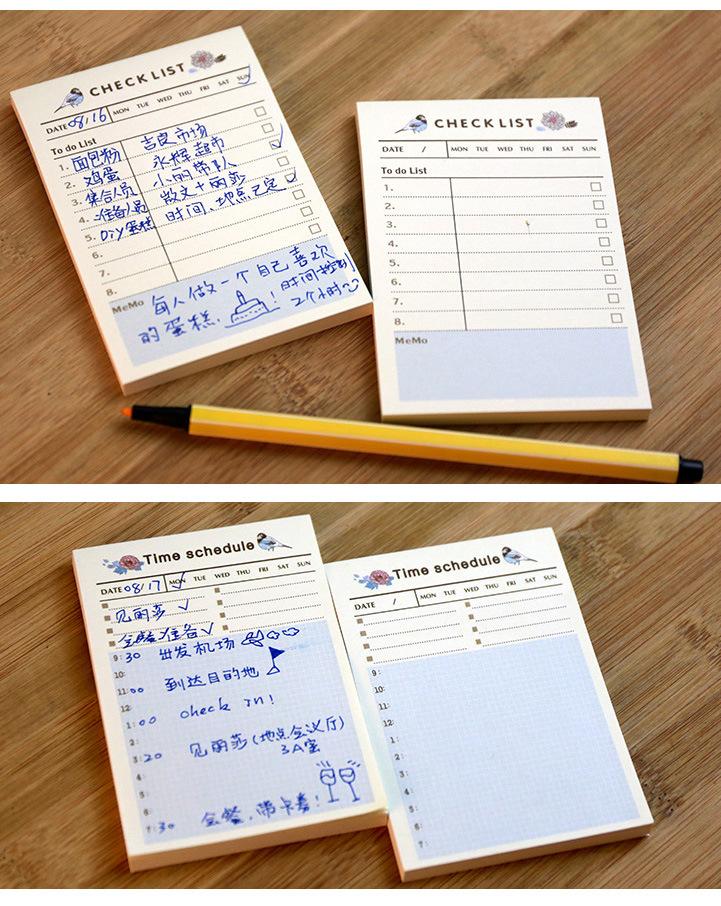 CHECK LIST
DATE 08/16 MON TUE WED THU FRI SAT SUN
To do List
1. 面包粉 吉良市场
2. 鸡蛋 永辉超市
3. 集合人员 小丽带队
4. 准备人员 散文十丽莎
5. DIY蛋糕 时间、地点已定
6.
7.
8.
MeMo 每人做一个自己喜欢
的蛋糕. ! 时间控制
2个小时
CHECK LIST
DATE / MON TUE WED THU FRI SAT SUN
To do List
1.
2.
3.
4.
5.
6.
7.
8.
MeMo
Time schedule
DATE 08/17 MON TUE WED THU FRI SAT SUN
见丽莎
会餐准备
9:30 出发机场
10:
11:00 到达目的地
12:
1:00 check in!
2:
3:20 见丽莎(地点会议厅)
3A室
4:
5:
6:
7:30 会餐,带卡
Time schedule
DATE / MON TUE WED THU FRI SAT SUN
9:
10:
11:
12:
1:
2:
3:
4:
5:
6:
7: